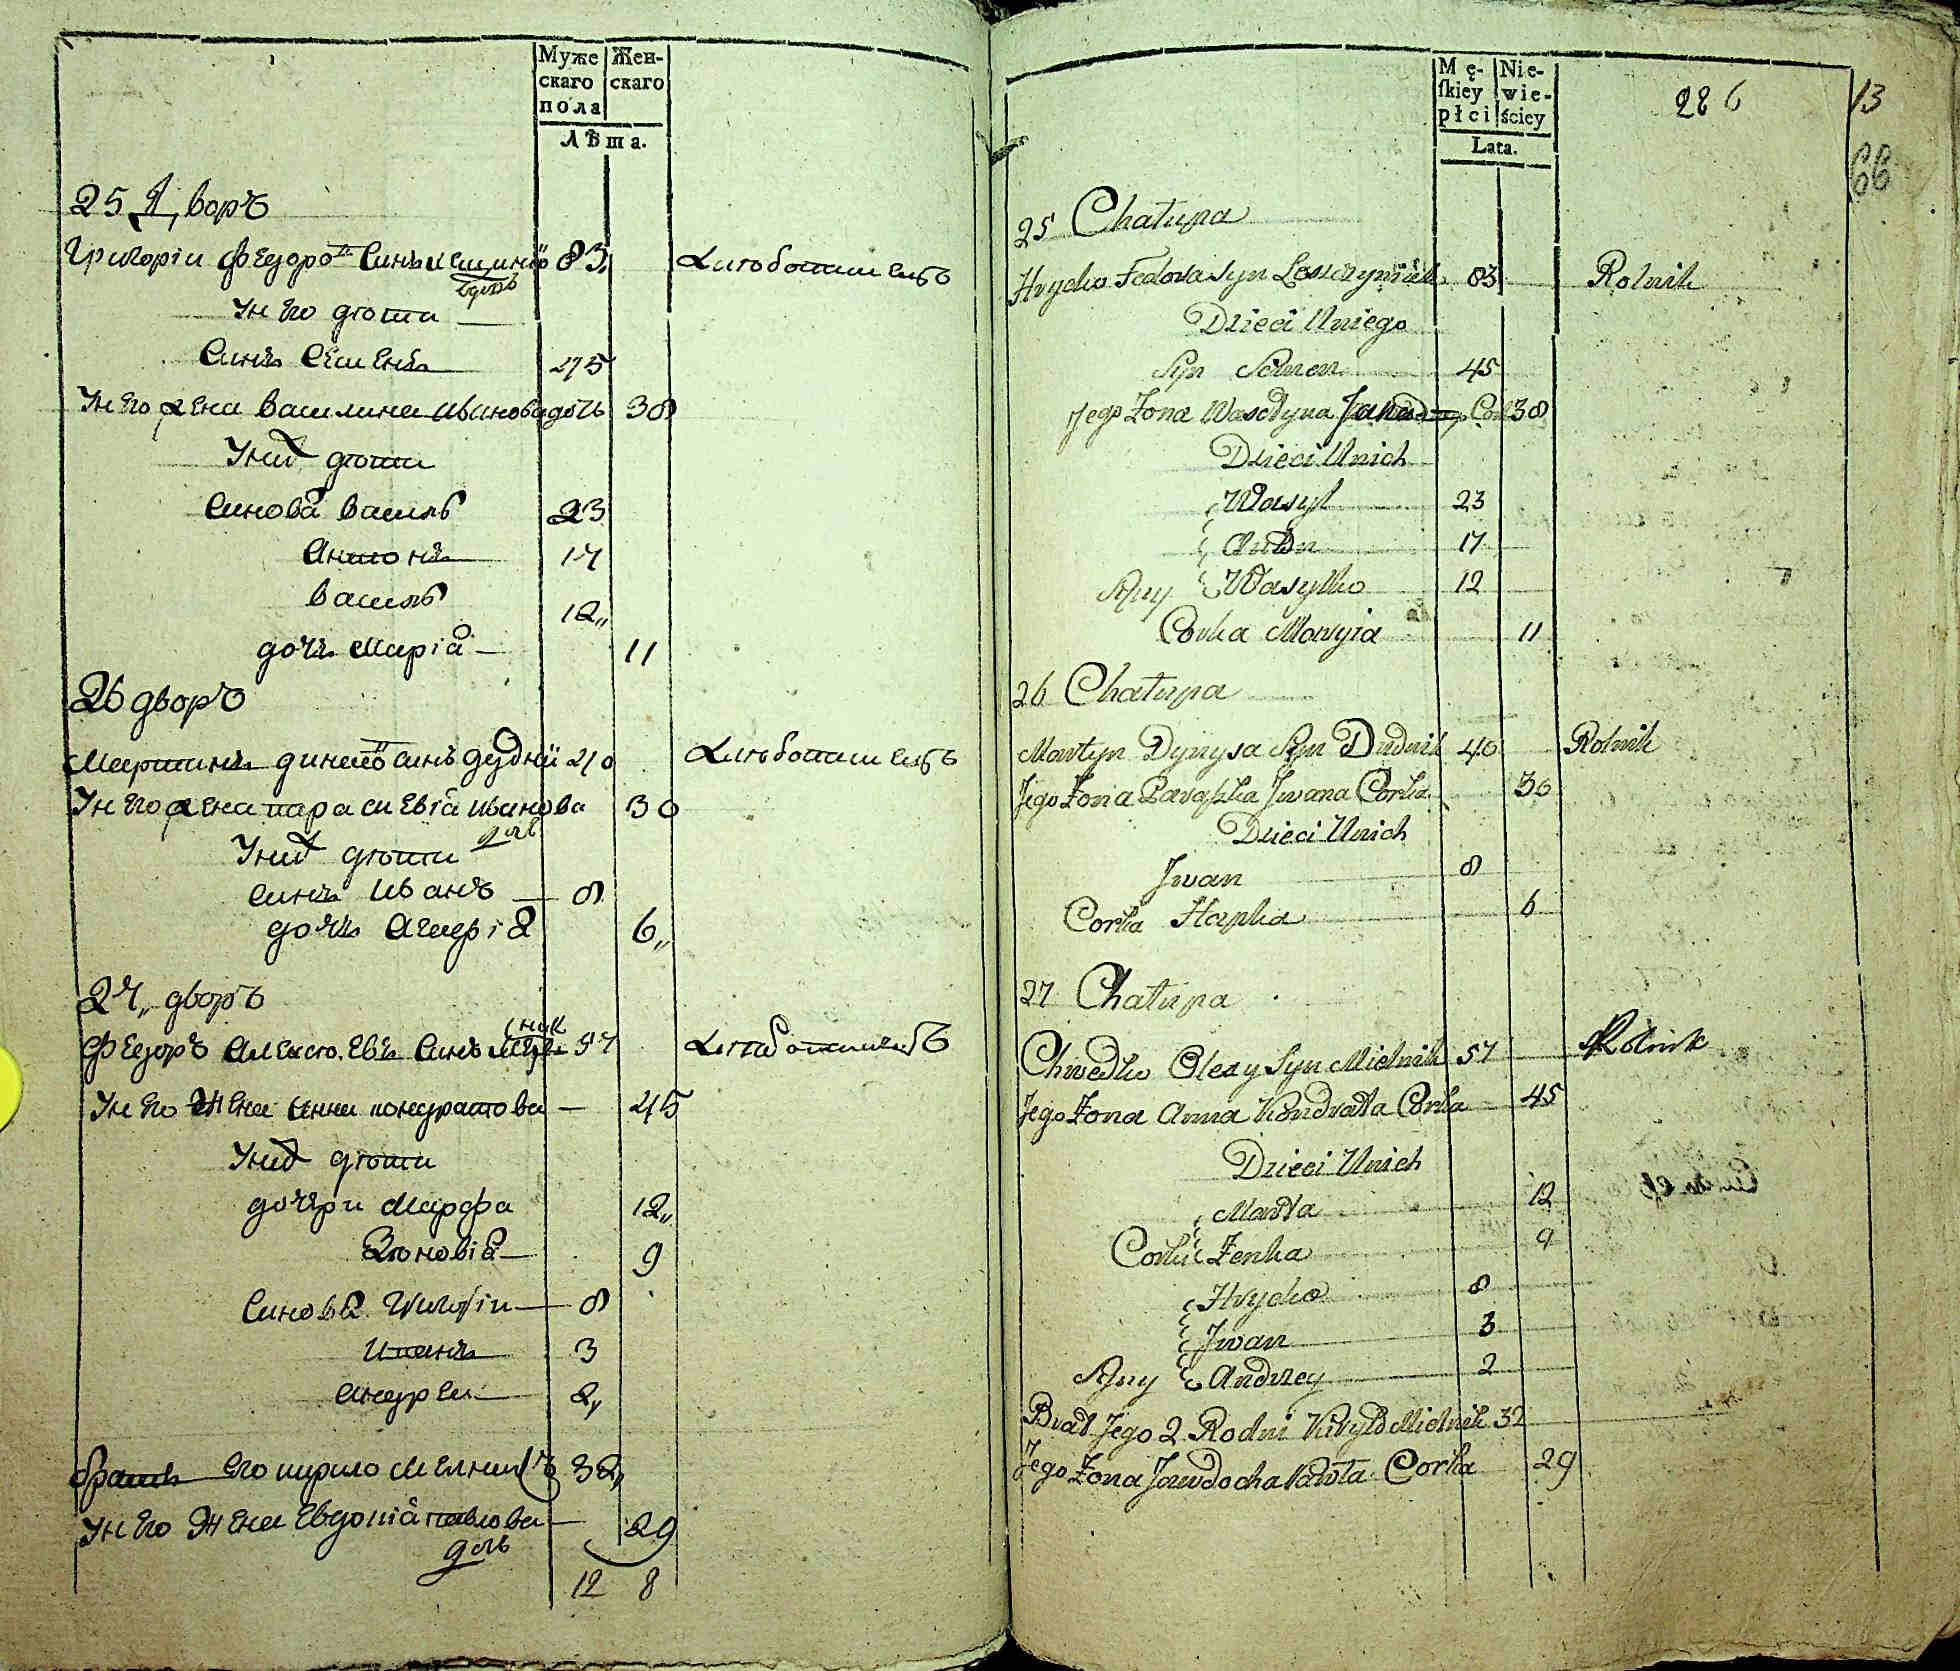 Муже
скаго
пола
Жен-
скаго
Лѣта.
25 Дворъ
Григоріи Федоро синъ 83
Хлѣбопашецъ
Унего дѣти
Синъ Семенъ 45
Унего жена Василина Иванова дочь 38
Унихъ дѣти
Синова Василь 23
Антонъ 17
Василь 12
дочь Марія 11
26 дворъ
Мартинъ синъ Дудни 40
Хлѣбопашецъ
Унего жена Параскевія Иванова 30
дочь
Унихъ дѣти
Синъ Иванъ 8
дочь Агафія 6
27 дворъ
Федоръ Алексѣевъ Синъ 57
Хлѣбопашецъ
Унего жена Анна Кондратова 45
Унихъ дѣти
дочери Марфа 12
Зѣновія 9
Синова Григоріи 8
Иванъ 3
Андреи 2
братъ Его Кирило Мелникъ 32
Унего Жена Евдокія Павлова 29
дочь
12 8
Mę-
ſkiey
płci
Nie-
wie-
ściey
Lata.
286
13
66
25 Chatupa
Hrycko Fedora Syn 83 Rolnik
Dzieci Uniego
Syn Semen 45
Jego Zona Wasclyna Jwana Cor 38
Dzieci Unich
Wasyl 23
Anton 17
Syny Wasylko 12
Corka Maryia 11
26 Chatupa
Martyn Dynysa Syn Dudnik 40 Rolnik
Jego Zona Paraska Jwana Corka 30
Dzieci Unich
Jwan 8
Corka Hapka 6
27 Chatupa
Chwedko Olexy Syn Mielnik 57 Rolnik
Jego Zona Anna Kondrata Corka 45
Dzieci Unich
Marta 12
Corki Zenka 9
Hrycko 8
Jwan 3
Syny Andrzey 2
Brat Jego 2 Rodni Kirylo Mielnik 32
Jego Zona Jawdocha Pawla Corka 29